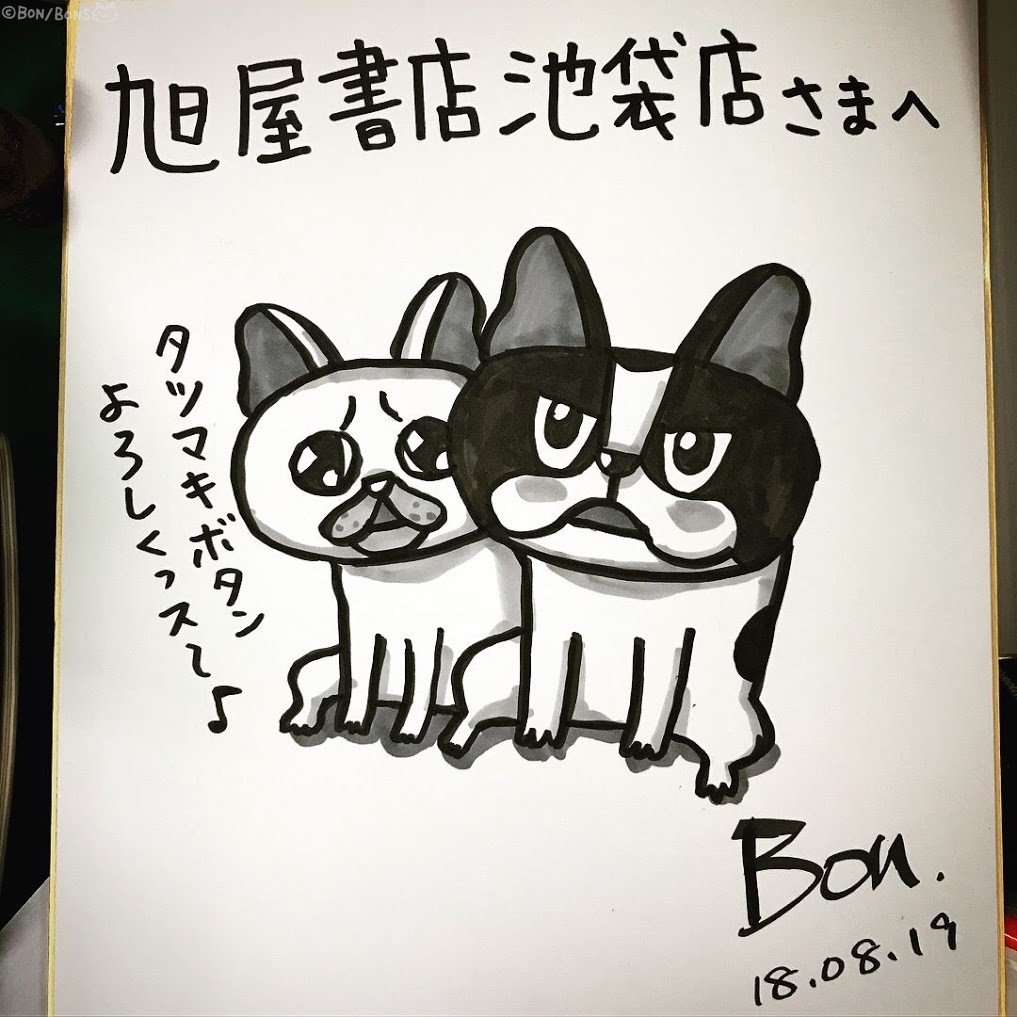 ©BON/BONS
旭屋書店池袋店さまへ
タツマキボタン
よろしくっス〜♪
Bon.
18.08.19